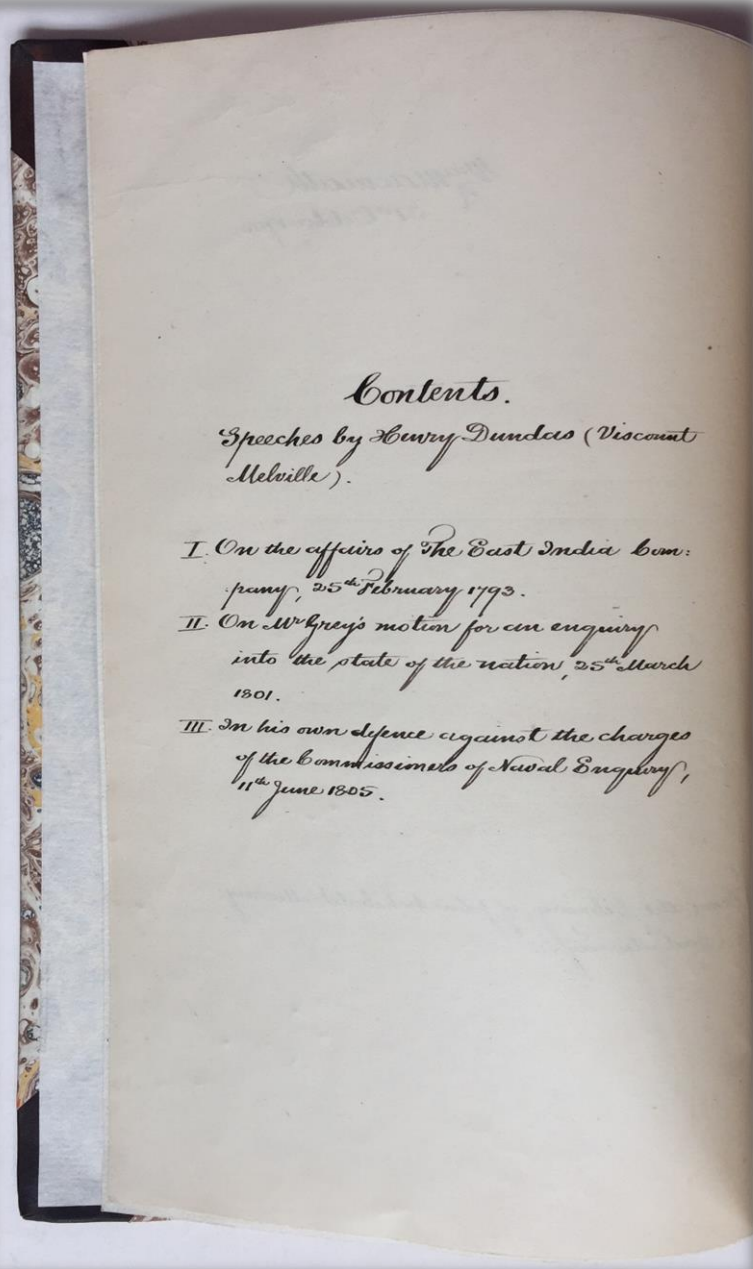 Contents.
Speeches by Henry Dundas (Viscount
Melville).
I. On the affairs of The East India Com:
pany, 25th February 1793.
II. On Mr Grey's motion for an enquiry
into the state of the nation, 25th March
1801.
III. In his own defence against the charges
of the Commissioners of Naval Enquiry,
11th June 1805.